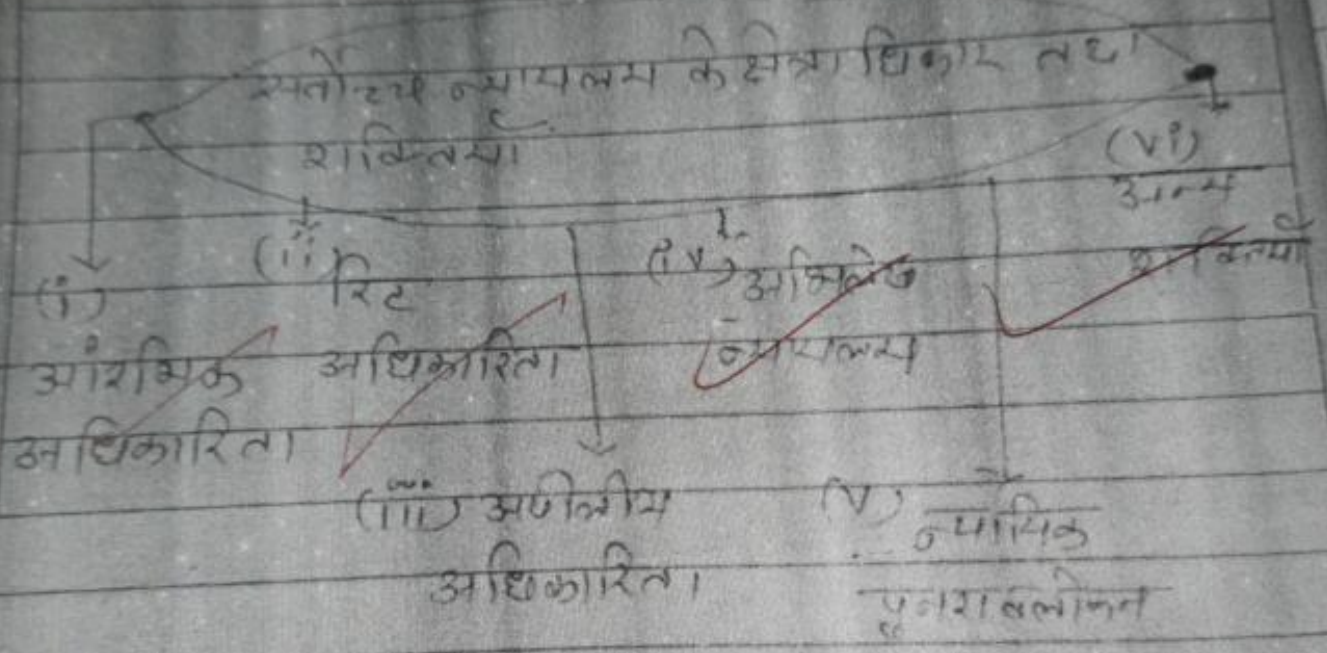 सर्वोच्च न्यायलय के क्षेत्राधिकार तथा
शक्तियां
(i)
आंरभिक
अधिकारिता
(ii) रिट
अधिकारिता
(iii) अपीलीय
अधिकारिता
(iv) अभिलेख
न्यायलय
(v) न्यायिक
पुनरावलोकन
(vi)
अन्य
शक्तियाँ